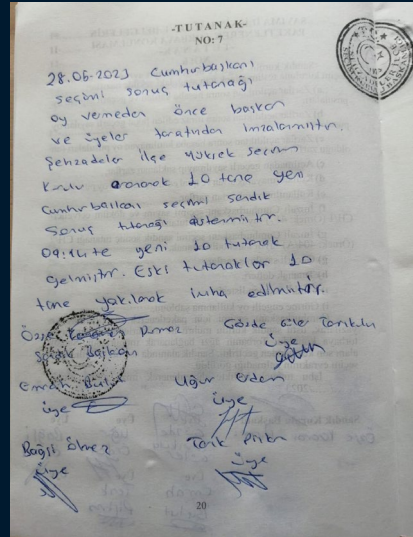 -TUTANAK-
NO: 7
28.05.2023 Cumhurbaşkanı
seçimi sonuç tutanağı
oy vermeden önce başkan
ve üyeler tarafından imzalanmıştır.
Şehzadeler İlçe Yüksek Seçim
Kurulu aranarak 10 tane yeni
Cumhurbaşkanı seçimi sandık
Sonuç tutanağı istenmiştir.
09:14'te yeni 10 tutanak
gelmiştir. Eski tutanaklar 10
tane yakılarak imha edilmiştir.
Gözde
Sandık Başkanı
Üye
Uğur Erdem
üye
üye
Tarık
Üye
Üye
20